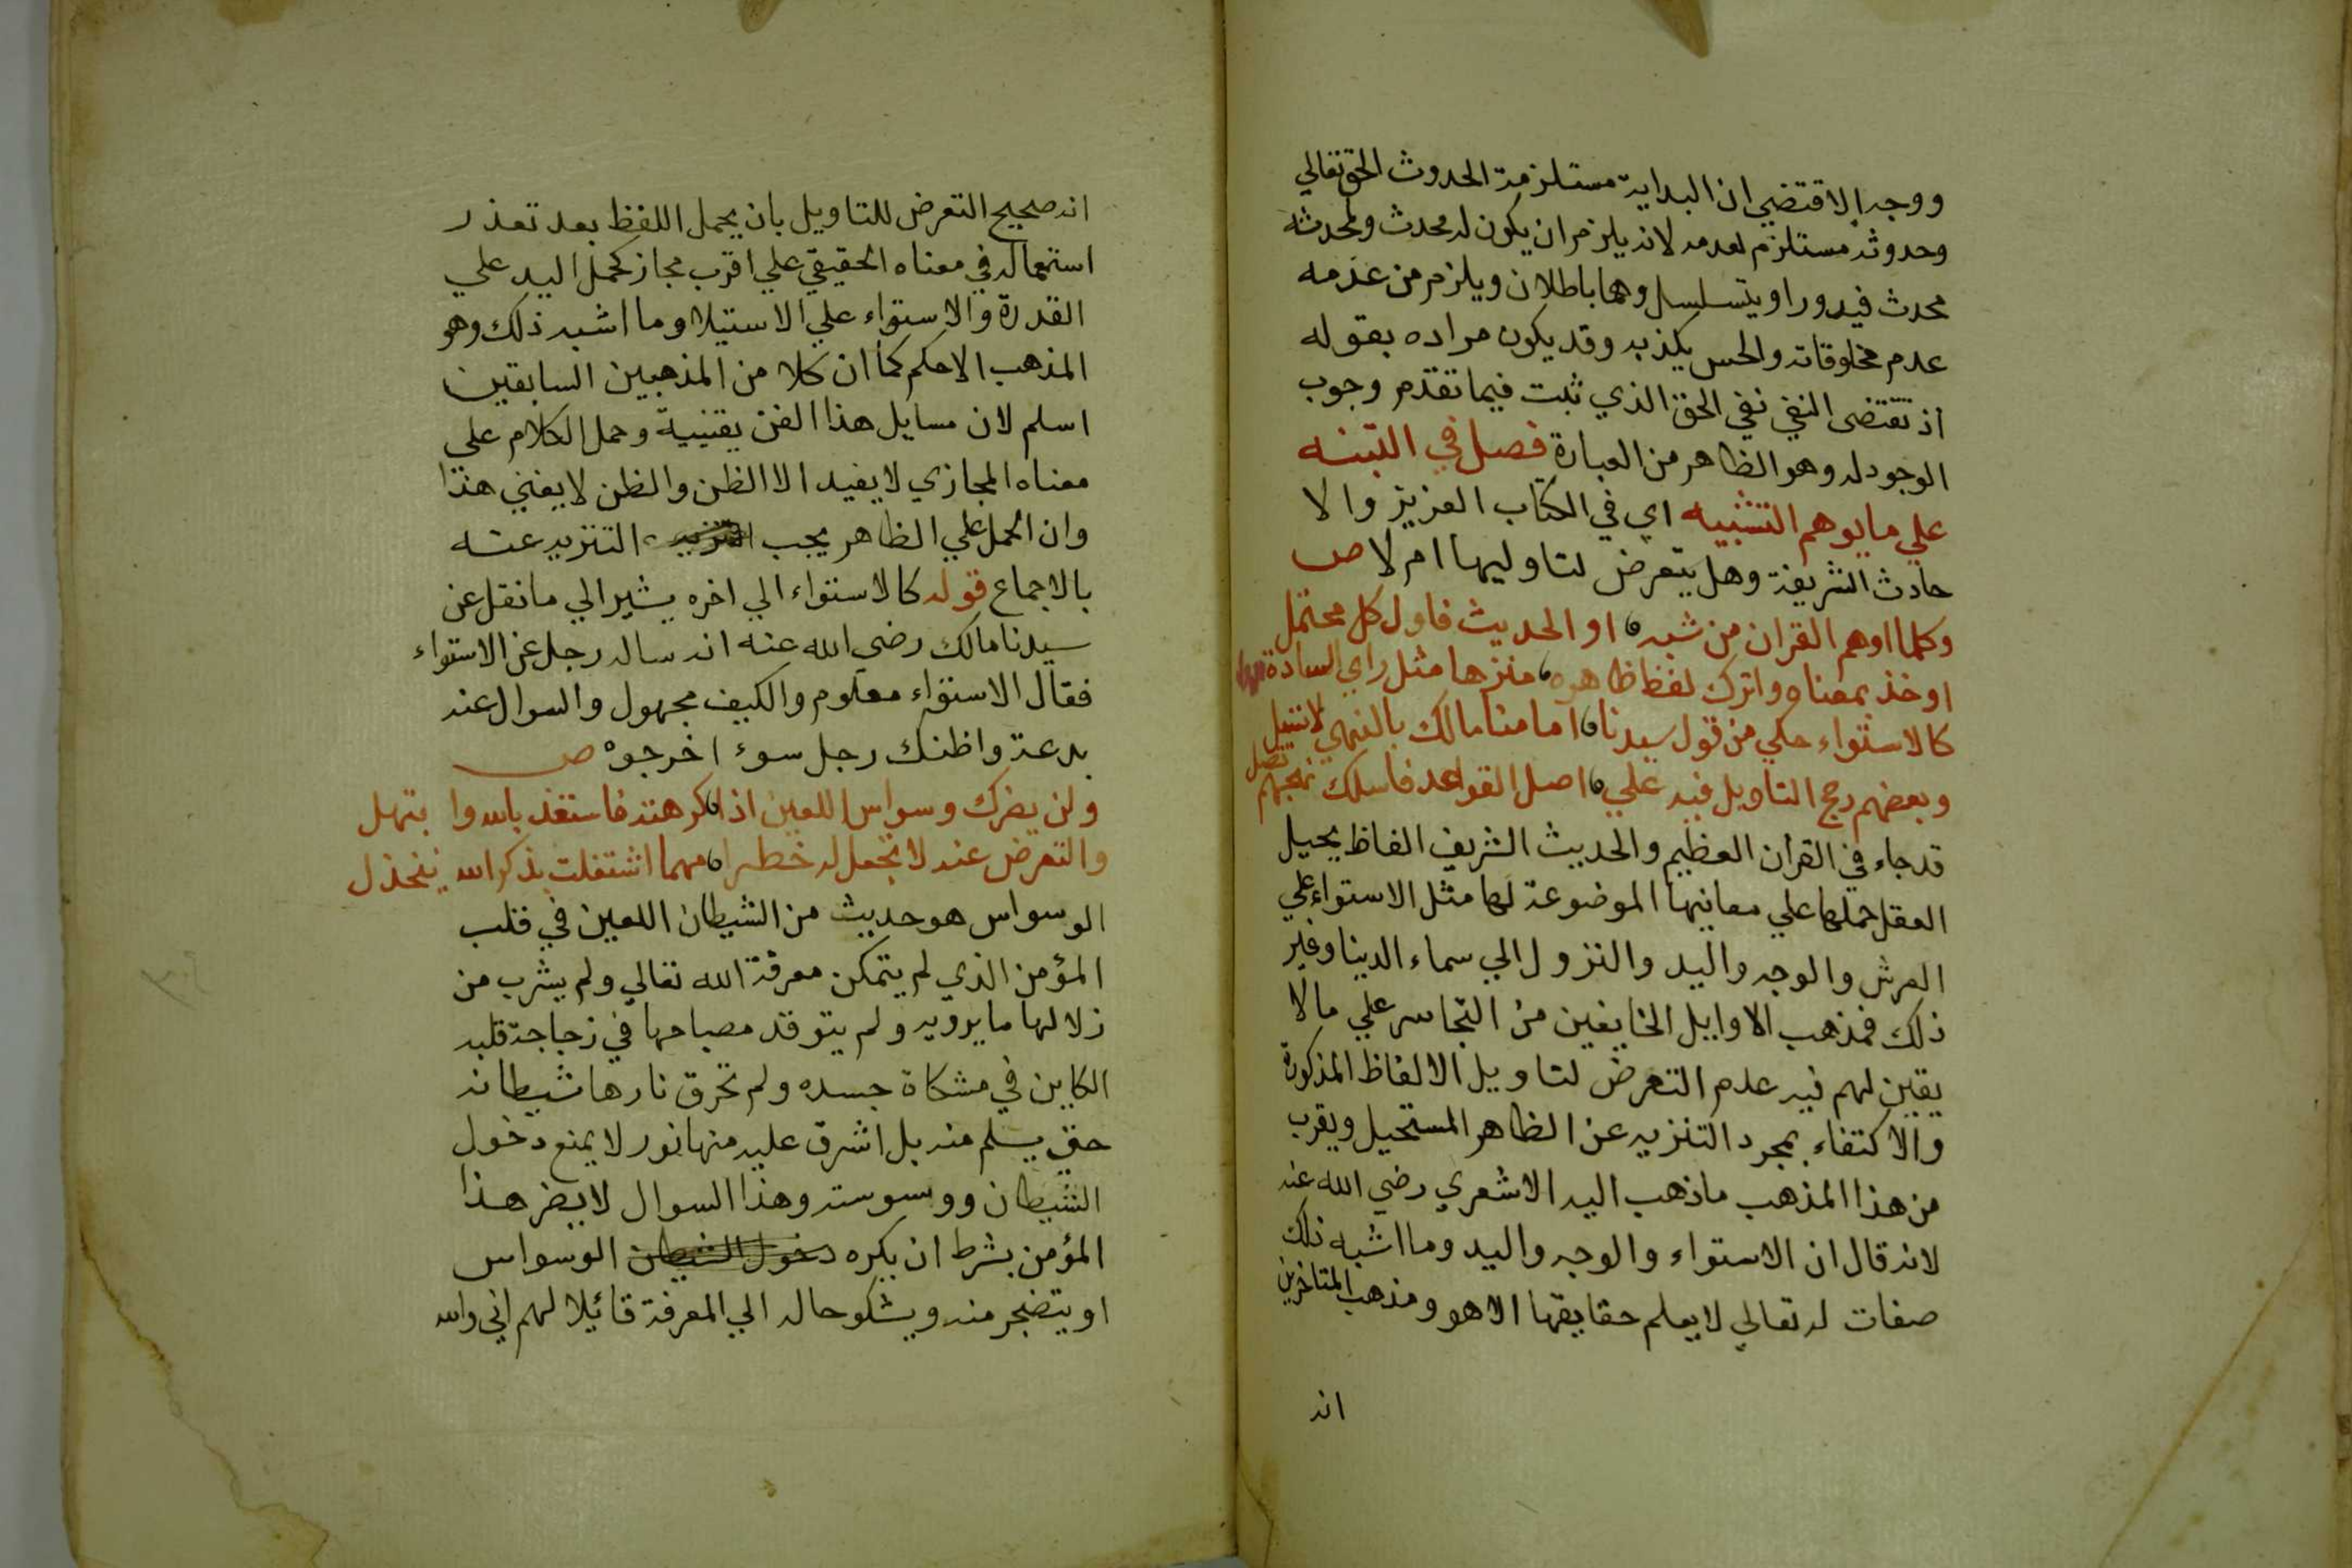 ووجه الاقتضي ان البداية مستلزمة الحدوث الحق تعالي
وحدوثه مستلزم لعدمه لانه يلزم ان يكون له محدث ولمحدثه
محدث فيدورا ويتسلسل وهما باطلان ويلزم من عدمه
عدم مخلوقاته والحس يكذبه وقد يكون مراده بقوله
اذ تقتضى النفي نفي الحق الذي ثبت فيما تقدم وجوب
الوجود له وهو الظاهر من العبارة فصل في التبنه
علي مايوهم التشبيه اي في الكتاب العزيز والا
حادث الشريفة وهل يتعرض لتاوليها ام لا ص
وكلما اوهم القران من شبه او الحديث فاول كل محتمل
اوخذ بمعناه واترك لفظ ظاهره منزها مثل راي السادة
كالاستواء حكي من قول سيدنا امامنا مالك بالنهي لانتيل
وبعضهم رجح التاويل فيه علي اصل القواعد فاسلك نهجهم تصل
قد جاء في القرآن العظيم والحديث الشريف الفاظ يحيل
العقل حملها علي معانيها الموضوعة لها مثل الاستواء علي
العرش والوجه واليد والنزول الي سماء الدينا وغير
ذلك فمذهب الاوايل الخايفين من التجاسر علي مالا
يقين لهم فيه عدم التعرض لتاويل الالفاظ المذكورة
والاكتفاء بمجرد التنزيه عن الظاهر المستحيل ويقرب
من هذا المذهب ماذهب اليه الاشعري رضي الله عنه
لانه قال ان الاستواء والوجه واليد وما اشبه ذلك
صفات له تعالي لا يعلم حقايقها الا هو ومذهب المتاخرين
انه
انه صحيح التعرض للتاويل بان يحمل اللفظ بعد تعذر
استعماله في معناه الحقيقي علي اقرب مجاز كحمل اليد علي
القدرة والاستواء علي الاستيلا وما اشبه ذلك وهو
المذهب الاحكم كما ان كلا من المذهبين السابقين
اسلم لان مسايل هذا الفن يقينية وحمل الكلام علي
معناه المجازي لا يفيد الا الظن والظن لايغني هذا
وان الحمل علي الظاهر يجب التنزيه التنزيه عنه
بالاجماع قوله كالاستواء الي اخره يشير الي ما نقل عن
سيدنا مالك رضي الله عنه انه ساله رجل عن الاستواء
فقال الاستواء معلوم والكيف مجهول والسوال عنه
بدعة واظنك رجل سوء اخرجوه ص
ولن يضرك وسواس اللعين اذا كرهته فاستعذ بالله وابتهل
والتعرض عنه لا تجعل له خطرا مهما اشتغلت بذكر الله ينخذل
الوسواس هو حديث من الشيطان اللعين في قلب
المؤمن الذي لم يتمكن معرفة الله تعالي ولم يشرب من
زلالها مايرويه ولم يتوقد مصباحها في زجاجة قلبه
الكاين في مشكاة جسده ولم تحرق نارها شيطانه
حتي يسلم منه بل اشرق عليه منها نور لا يمنع دخول
الشيطان ووسوسته وهذا السوال لايضر هذا
المؤمن بشرط ان يكره دخول الشيطان الوسواس
او يتضجر منه ويشكو حاله الي المعرفة قائيلا لهم اني والله